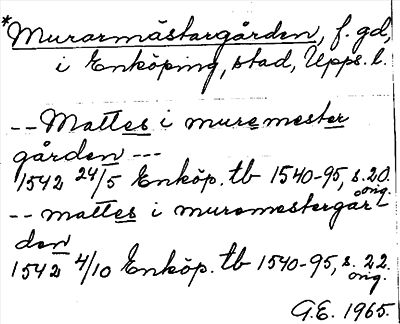 *Murarmästargården, f. gd,
i Enköping, stad, Upps. l.
-- Mattes i muremester
gården ---
1542 24/5 Enköp. tb 1540-95, s. 20.
orig.
-- mattes i muromestergår-
den
1542 4/10 Enköp. tb 1540-95, s. 22.
orig.
G.E. 1965.